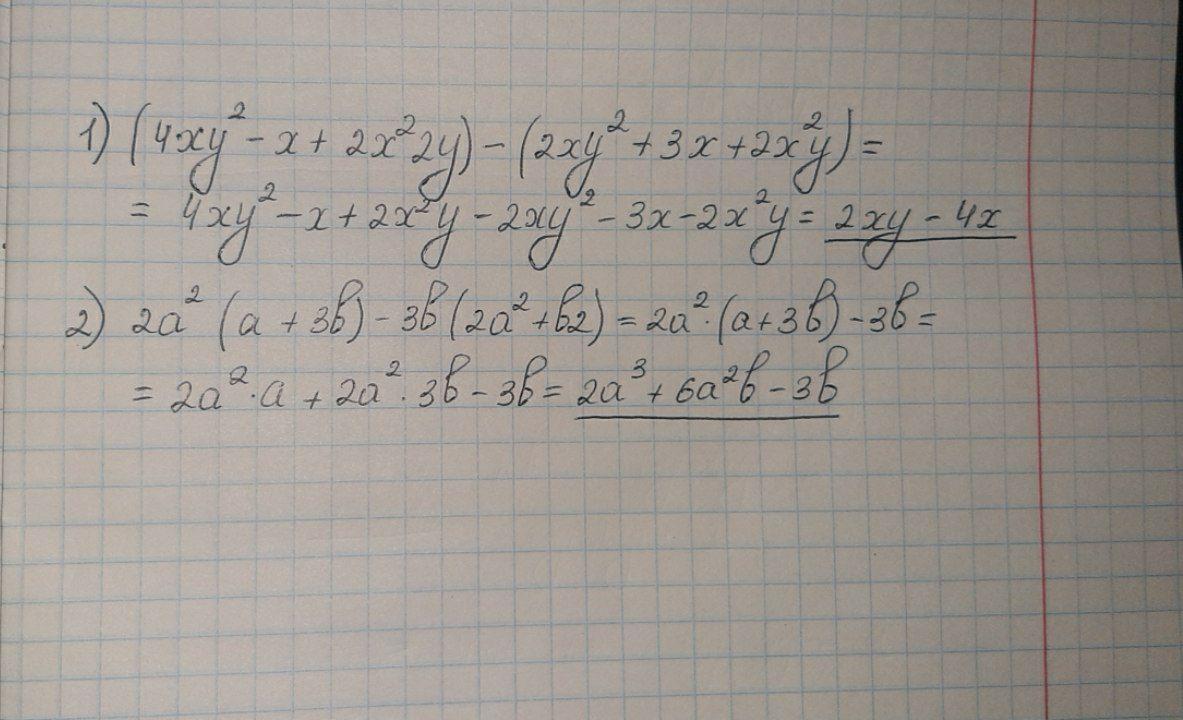 1) (4xy² - x + 2x²2y) - (2xy² + 3x + 2x²y) =
= 4xy² - x + 2x²y - 2xy² - 3x - 2x²y = 2xy - 4x
2) 2a² (a + 3b) - 3b (2a² + b2) = 2a²·(a + 3b) - 3b =
= 2a²·a + 2a²·3b - 3b = 2a³ + 6a²b - 3b